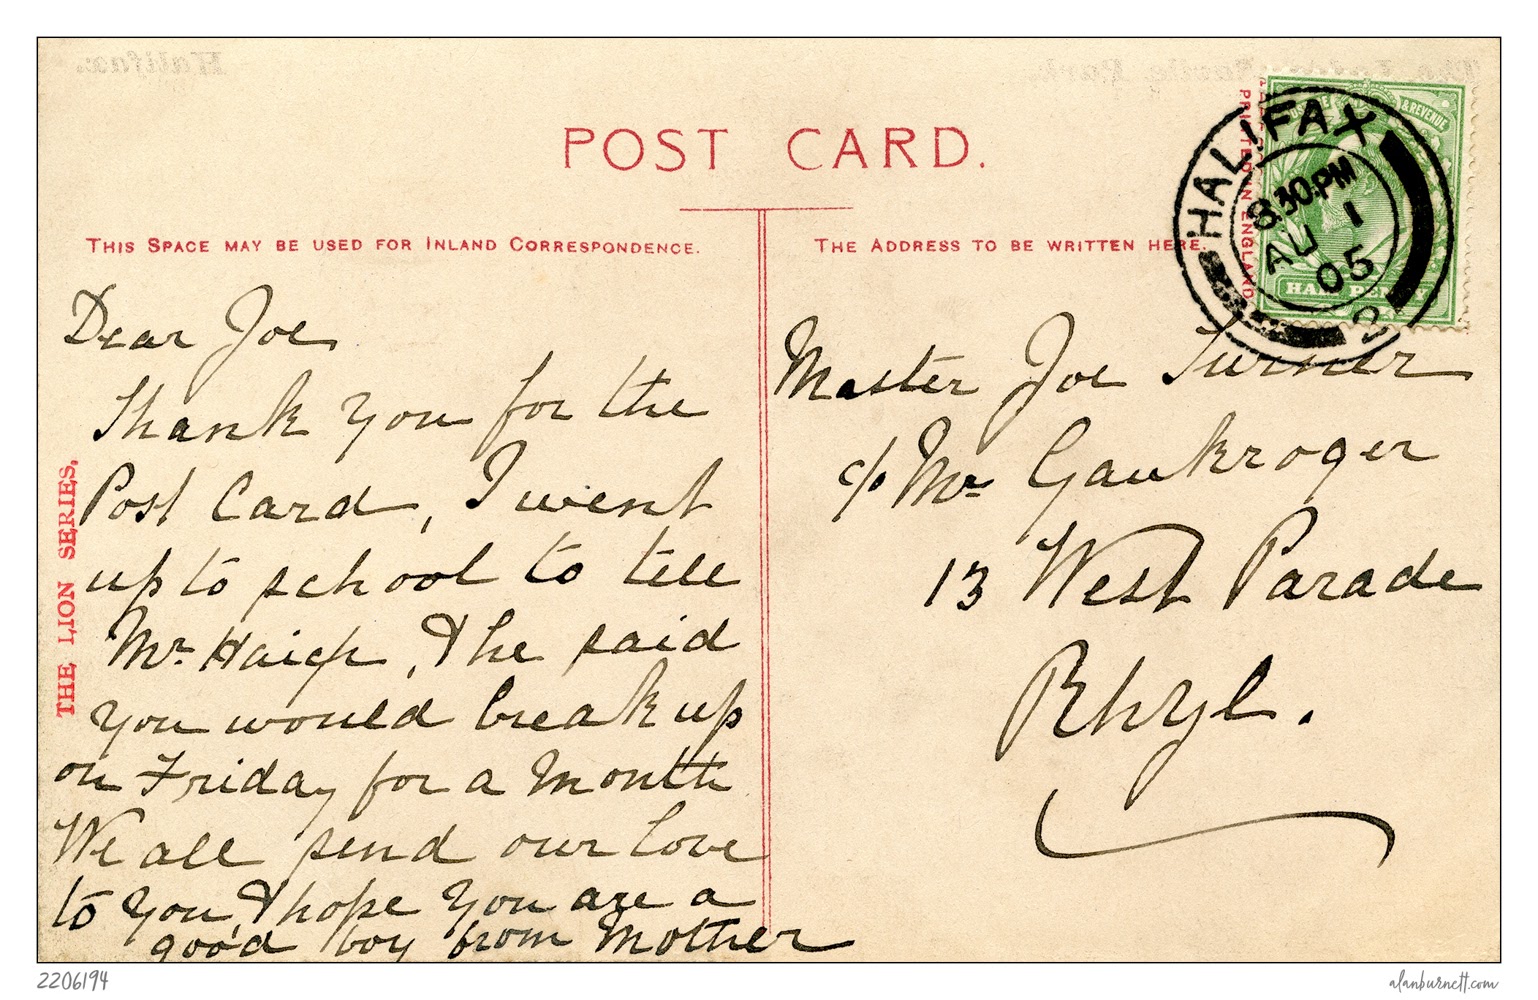 Halifax.
POST CARD.
THIS SPACE MAY BE USED FOR INLAND CORRESPONDENCE.
THE ADDRESS TO BE WRITTEN HERE.
PRINTED IN ENGLAND
& REVENUE
HALF PENNY
HALIFAX
8.30 PM
AU 1
05
2
THE LION SERIES,
Dear Joe
Thank you for the
Post Card, I went
up to school to tell
Mr. Haigh, & he said
you would break up
on Friday for a month
We all send our love
to you, & hope you are a
good boy from Mother
Master Joe Turner
c/o Mr Gaukroger
13 West Parade
Rhyl.
2206194
alanburnett.com